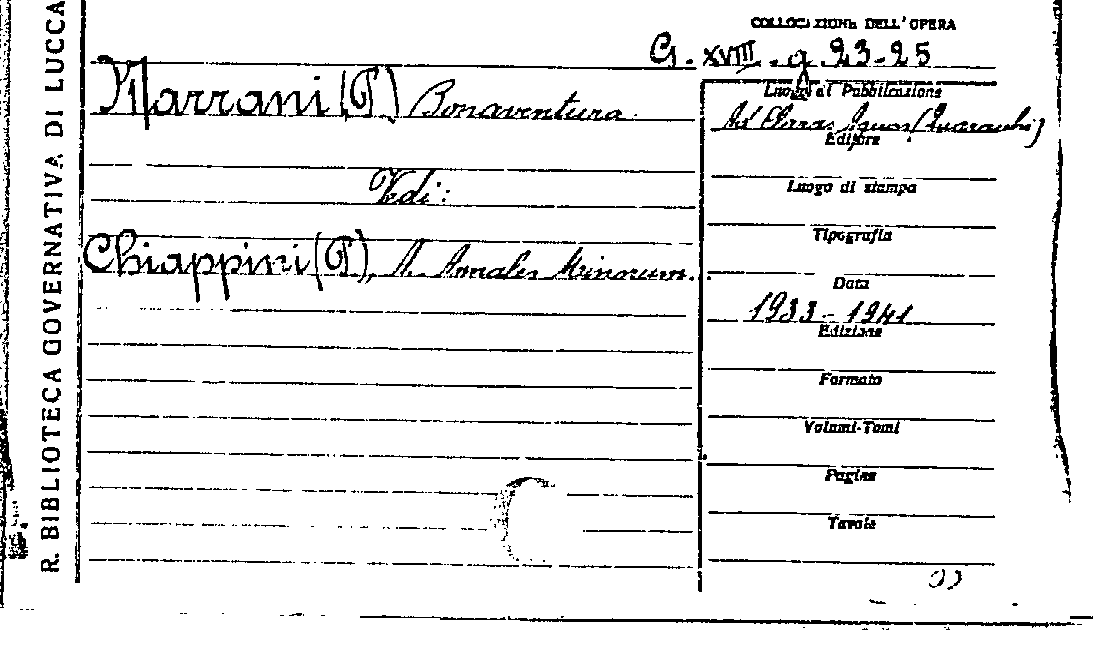 R. BIBLIOTECA GOVERNATIVA DI LUCCA
COLLOCAZIONE DELL'OPERA
G. XVIII. g. 23-25
Marrani (P.) Bonaventura.
Vedi:
Chiappini (P.), A. Annales Minorum.
Luogo di Pubblicazione
Ad Claras Aquas (Quaracchi)
Editore
Luogo di stampa
Tipografia
Data
1933-1941
Edizione
Formato
Volumi-Tomi
Pagine
Tavole